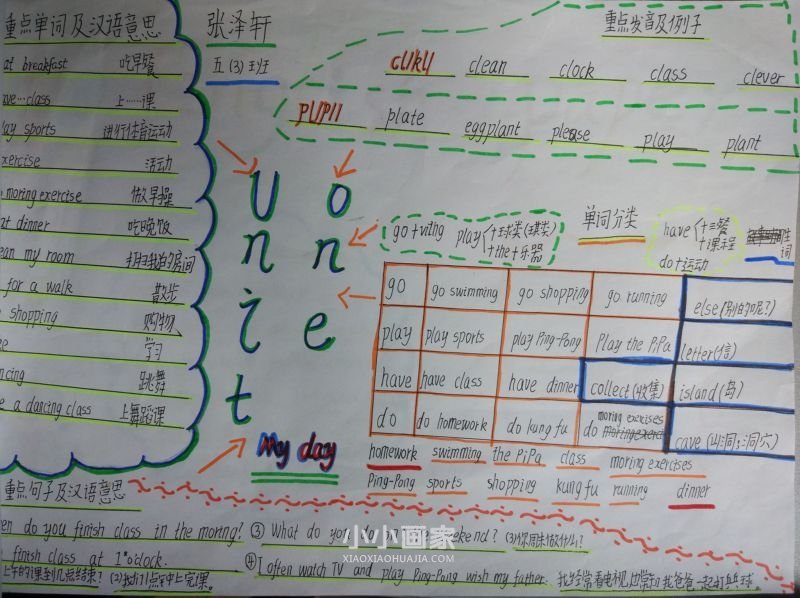 重点单词及汉语意思
at breakfast 吃早餐
ave…class 上……课
lay sports 进行体育运动
xercise 活动
moring exercise 做早操
at dinner 吃晚饭
ean my room 打扫我的房间
for a walk 散步
shopping 购物
学习
ncing 跳舞
e a dancing class 上舞蹈课
张泽轩
五(3)班
重点发音及例子
clean clock class clever
plate eggplant please play plant
Unit
one
My day
go+ving play 十球类(球类) +the+乐器
单词分类
have 十三餐 十课程
do+运动
go go swimming go shopping go running else(别的;呢?)
play play sports play Ping-Pong Play the PiPa letter(信)
have have class have dinner collect(收集) island(岛)
do do homework do kung fu do moring exercises cave(山洞;洞穴)
homework swimming the PiPa class moring exercises
Ping-Pong sports shopping kung fu running dinner
重点句子及汉语意思
en do you finish class in the moring?
finish class at 1 o'clock.
上午的课到几点结束? (2)我们1点钟上完课。
③ What do you do
ekend? (3)你周末做什么?
④I often watch TV and play Ping-Pong wish my father. 我经常看电视,也常和我爸爸一起打乒乓球
小小画家
XIAOXIAOHUAJIA.COM